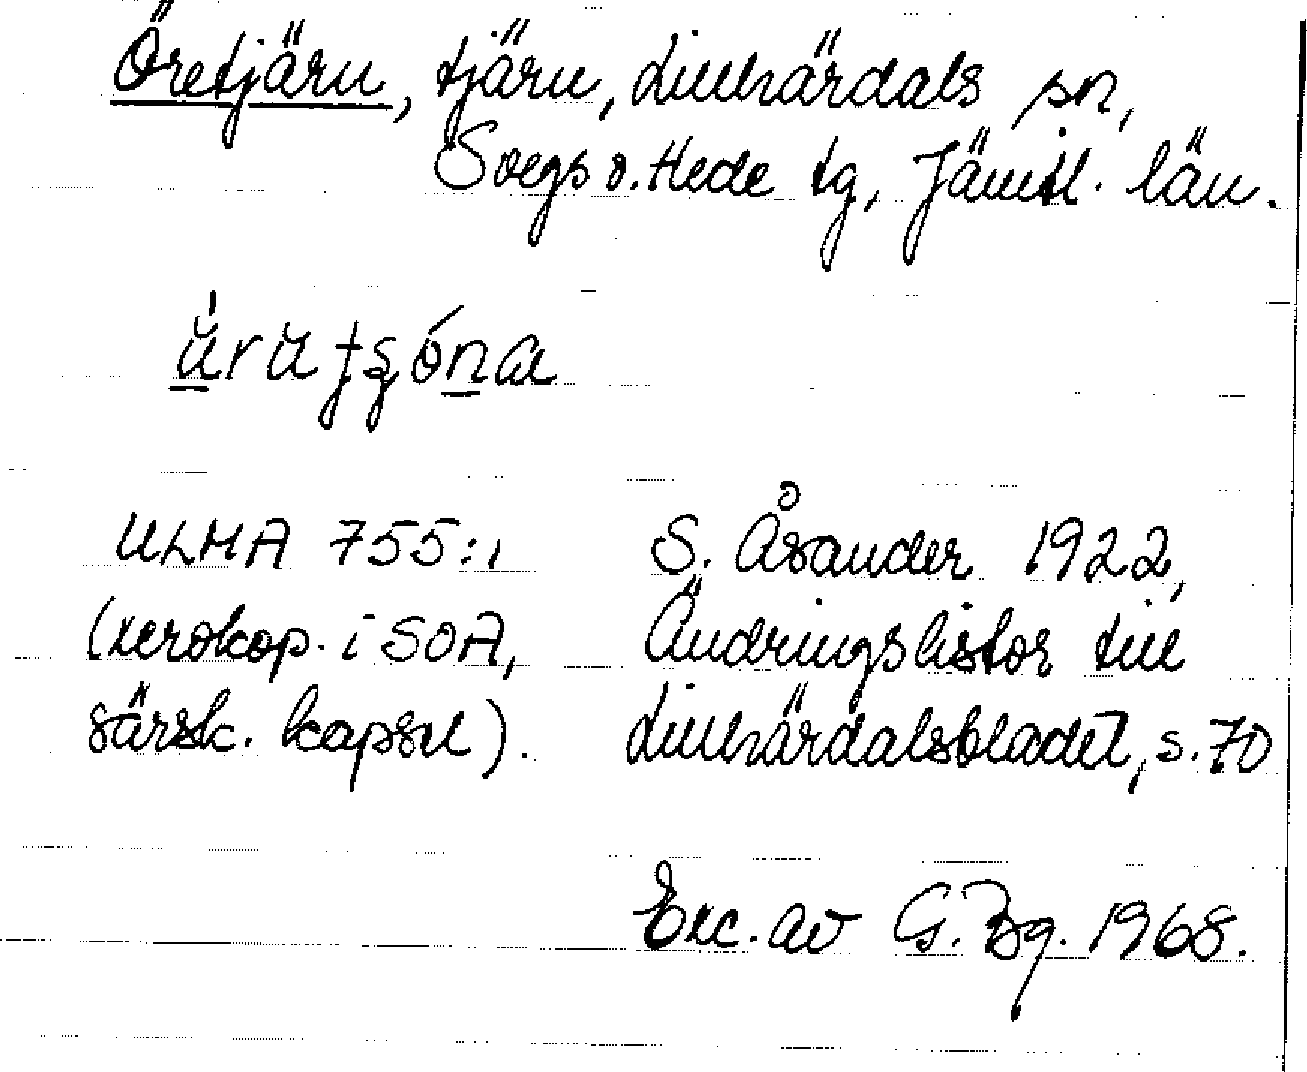 Öretjärn, tjärn, Lillhärdals sn,
Svegs o. Hede tg, Jämtl. län.
ULMA 755:1 S. Åsander 1922,
(xerokop. i SOA, Ändringslistor till
särsk. kapsel). Lillhärdalsbladet, s. 70
Exc. av G. Bg. 1968.